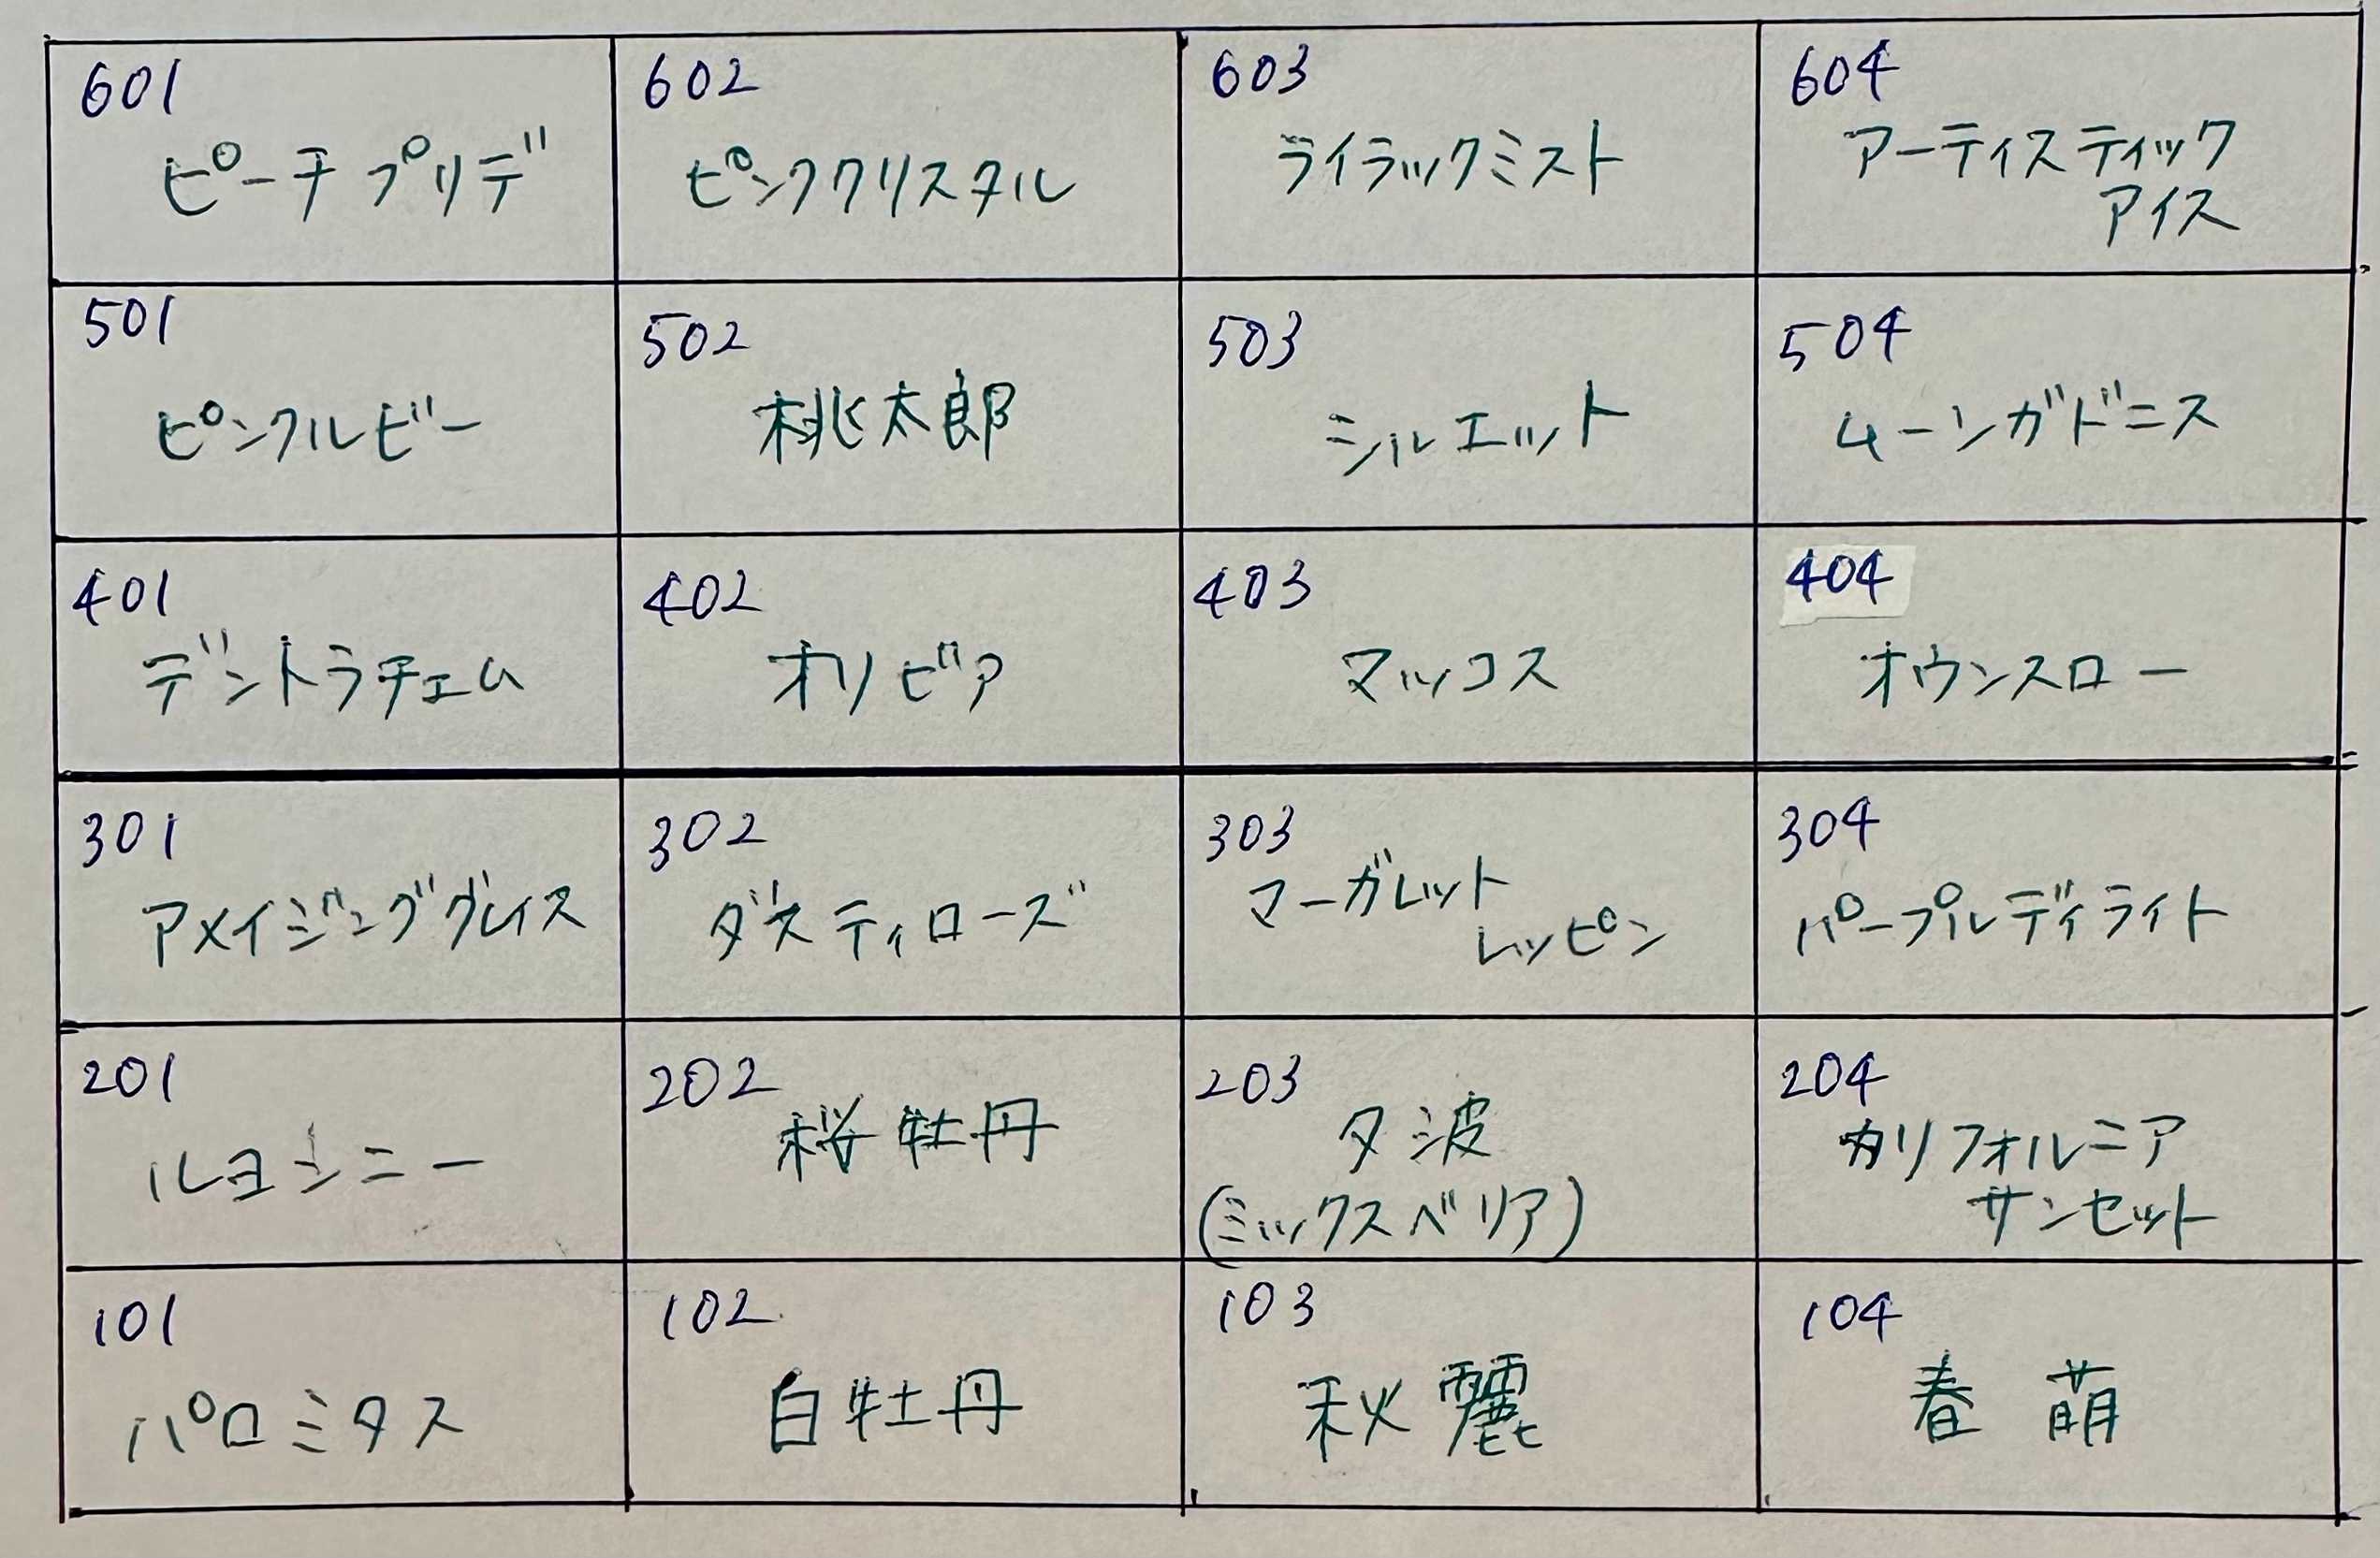 601
ピーチプリデ
602
ピンククリスタル
603
ライラックミスト
604
アーティスティック
アイス
501
ピンクルビー
502
桃太郎
503
シルエット
504
ムーンガドニス
401
デントラチェム
402
オリビア
403
マッコス
404
オウンスロー
301
アメイジンググレイス
302
ダスティローズ
303
マーガレット
レッピン
304
パープルディライト
201
ルヨンニー
202
桜牡丹
203
夕波
(ミックスベリア)
204
カリフォルニア
サンセット
101
パロミタス
102
白牡丹
103
秋麗
104
春萌